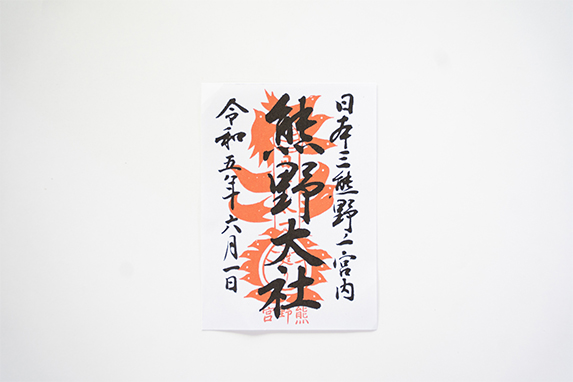 日本三熊野ノ宮内
熊野大社
令和五年六月一日
熊野宮